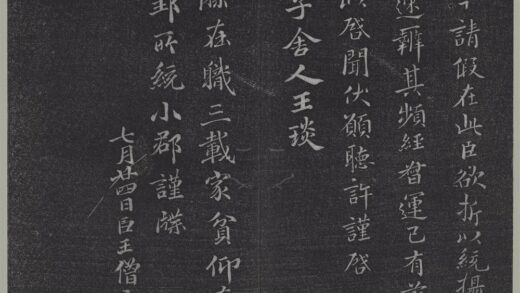 請假在此臣欲折以統攝
速辦其頻經督運已有前
以啓聞伏願聽許謹啓
子舍人王琰
牒在職三載家貧仰希
郢所統小郡謹牒
七月廿四日臣王僧